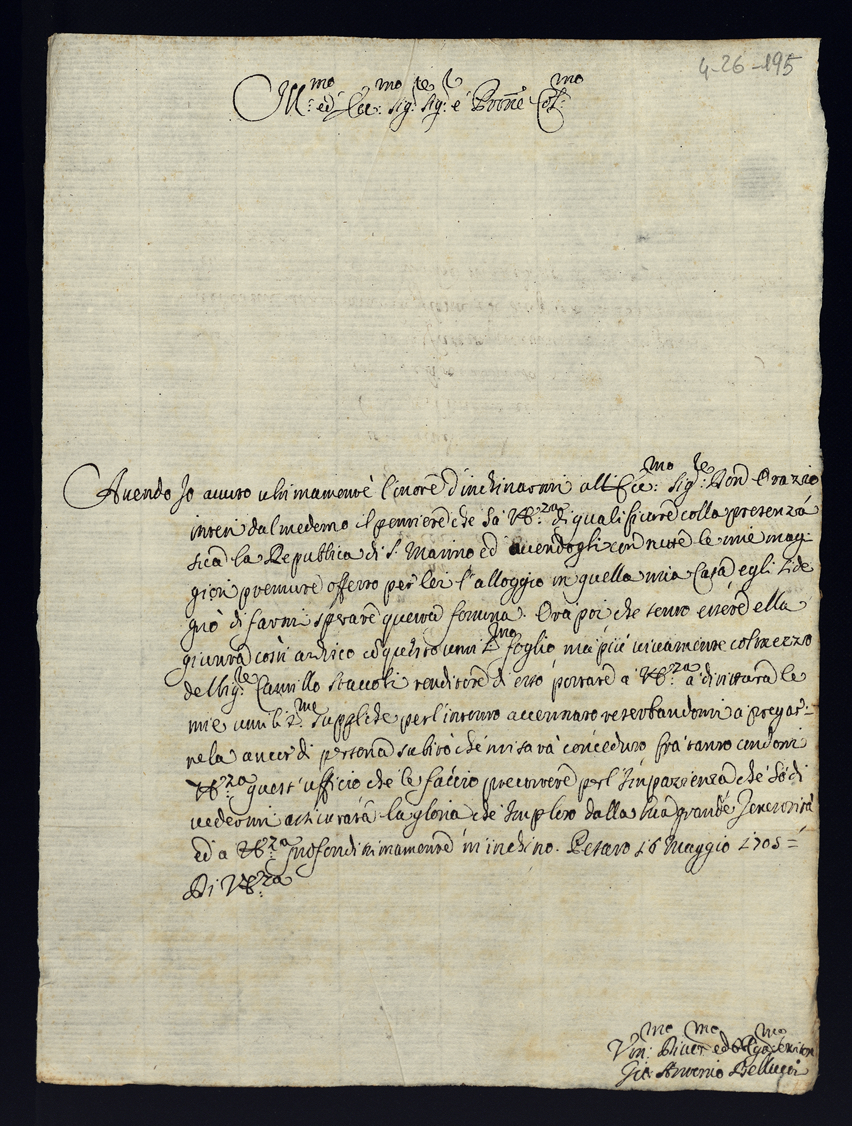 4-26-195
Ill.mo ed Ecc.mo Sig.re Sig.r e Prone Col.mo
Avendo Io avuto ultimamente l'onore d'inchinarmi all'Ecc.mo Sig.re Don Orazio
intesi dal medemo il pensiere che ha V.E.za di qualificare colla presenza
sua la Republica di S. Marino ed avendogli con tutte le mie mag-
giori premure offerto per lei l'alloggio in quella mia Casa egli si de
gnò di farmi sperare questa fortuna. Ora poi che sento essere ella
giunta così ardisco con questo umil.mo foglio mà più vivamente col mezzo
del Sig.re Camillo Staccoli renditore di esso portare a V.E.za a dirittura le
mie umiliss.me suppliche per l'intento accennato reserbandomi a pregar-
nela ancor di persona subito che mi sarà conceduto frà tanto condoni
V.E.za quest'ufficio che le faccio precorrere per l'Impazienza che hò di
vedermi assicurata la gloria che Imploro dalla sua grande Generosità
ed a V.E.za profondissimamente m'inchino. Pesaro 16 Maggio 1705=
Di V.E.za
Um.mo Divot.mo ed Oblg.mo Servitore
Gio. Antonio Bellucci